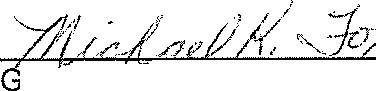 Michael K. Fo
G